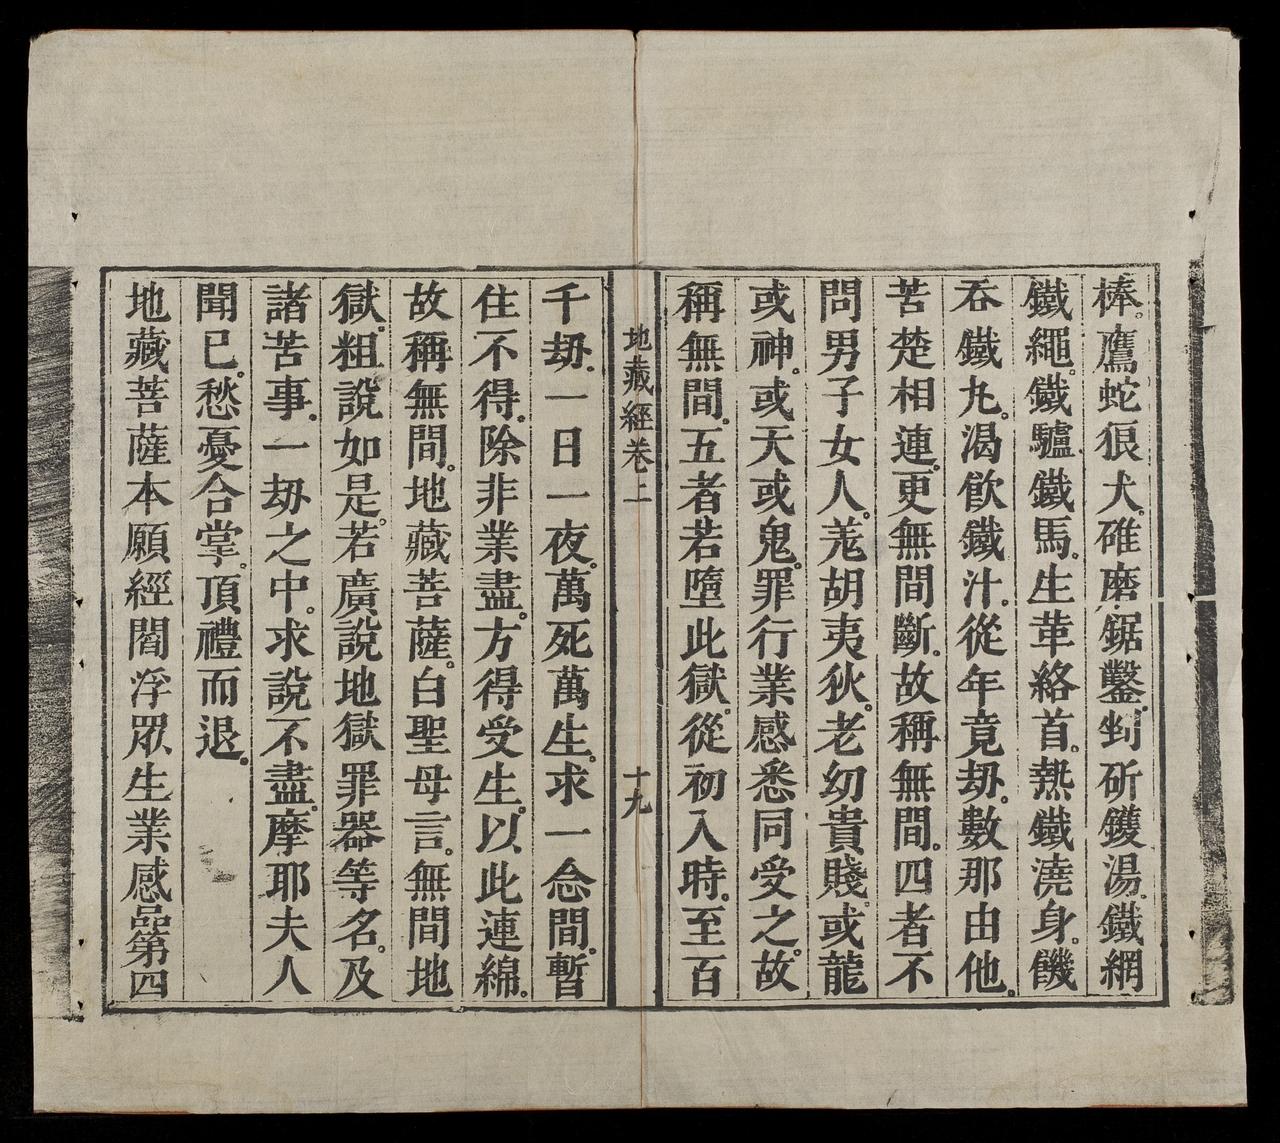 棒。鷹蛇狼犬。碓磨鋸鑿。剉斫鑊湯。鐵網
鐵繩。鐵驢鐵馬。生革絡首。熱鐵澆身。饑
吞鐵丸。渴飲鐵汁。從年竟劫。數那由他。
苦楚相連。更無間斷。故稱無間。四者不
問男子女人。羗胡夷狄。老幼貴賤。或龍
或神。或天或鬼。罪行業感悉同受之。故
稱無間。五者若墮此獄。從初入時。至百
地藏經卷上
十九
千劫。一日一夜。萬死萬生。求一念間。暫
住不得。除非業盡。方得受生。以此連綿。
故稱無間。地藏菩薩。白聖母言。無間地
獄。粗說如是。若廣說地獄罪器等名。及
諸苦事。一劫之中。求說不盡。摩耶夫人
聞已。愁憂合掌。頂禮而退。
地藏菩薩本願經閻浮眾生業感品第四